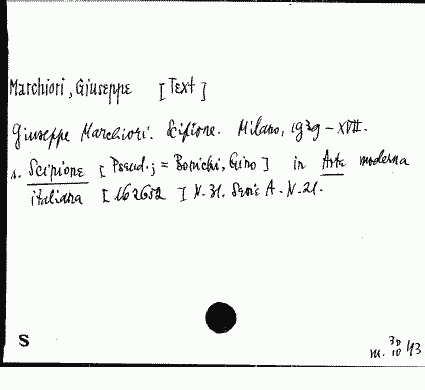 Marchiori, Giuseppe [Text]
Giuseppe Marchiori. Scipione. Milano, 1939-XVII.
s. Scipione [Pseud.; = Bonichi, Gino] in Arte moderna
italiana [162652] N. 31. Serie A. N. 21.
S
m. 30 10 43